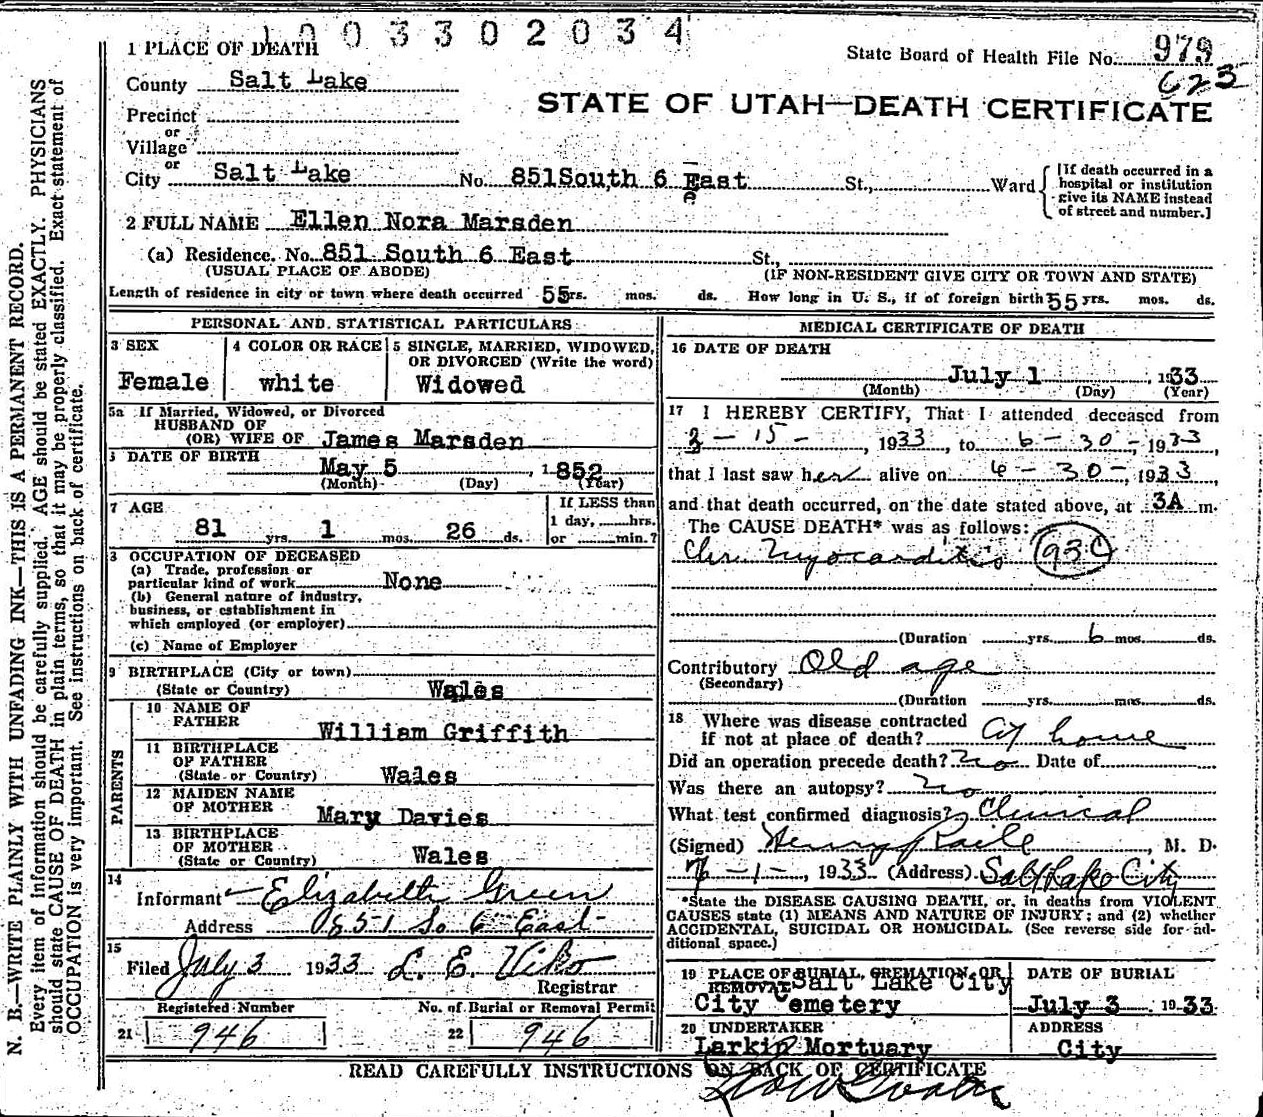 1003302034
1 PLACE OF DEATH
State Board of Health File No. 979
County Salt Lake
623
STATE OF UTAH—DEATH CERTIFICATE
Precinct
or
Village
or
City Salt Lake No. 851 South 6 East St., Ward
[If death occurred in a hospital or institution give its NAME instead of street and number.]
2 FULL NAME Ellen Nora Marsden
(a) Residence. No. 851 South 6 East St.,
(USUAL PLACE OF ABODE) (IF NON-RESIDENT GIVE CITY OR TOWN AND STATE)
Length of residence in city or town where death occurred 55 yrs. mos. ds. How long in U. S., if of foreign birth 55 yrs. mos. ds.
PERSONAL AND STATISTICAL PARTICULARS
3 SEX
Female
4 COLOR OR RACE
white
5 SINGLE, MARRIED, WIDOWED,
OR DIVORCED (Write the word)
Widowed
5a If Married, Widowed, or Divorced
HUSBAND OF
(OR) WIFE OF James Marsden
DATE OF BIRTH
May 5, 1852
(Month) (Day) (Year)
7 AGE
81 yrs. 1 mos. 26 ds.
If LESS than
1 day, hrs.
or min.?
8 OCCUPATION OF DECEASED
(a) Trade, profession or
particular kind of work None
(b) General nature of industry,
business, or establishment in
which employed (or employer)
(c) Name of Employer
9 BIRTHPLACE (City or town)
(State or Country) Wales
PARENTS
10 NAME OF
FATHER William Griffith
11 BIRTHPLACE
OF FATHER
(State or Country) Wales
12 MAIDEN NAME
OF MOTHER Mary Davies
13 BIRTHPLACE
OF MOTHER
(State or Country) Wales
14
Informant Elizabeth Green
Address 851 So 6 East
15
Filed July 3 1933 L. E. Viko
Registrar
Registered Number
21 946
No. of Burial or Removal Permit
22 946
MEDICAL CERTIFICATE OF DEATH
16 DATE OF DEATH
July 1, 1933
(Month) (Day) (Year)
17 I HEREBY CERTIFY, That I attended deceased from
2-15-, 1933 to 6-30-, 1933,
that I last saw her alive on 6-30-, 1933,
and that death occurred, on the date stated above, at 3A m.
The CAUSE DEATH* was as follows:
Chr. Myocarditis 93C
(Duration yrs. 6 mos. ds.
Contributory Old age
(Secondary)
(Duration yrs. mos. ds.
18 Where was disease contracted
if not at place of death? At home
Did an operation precede death? No Date of
Was there an autopsy? No
What test confirmed diagnosis? Clinical
(Signed) Henry Raile, M. D.
7-1-, 1933 (Address) Salt Lake City
*State the DISEASE CAUSING DEATH, or, in deaths from VIOLENT
CAUSES state (1) MEANS AND NATURE OF INJURY; and (2) whether
ACCIDENTAL, SUICIDAL OR HOMICIDAL. (See reverse side for ad-
ditional space.)
19 PLACE OF BURIAL, CREMATION, OR
REMOVAL Salt Lake City
City Cemetery
DATE OF BURIAL
July 3 1933
20 UNDERTAKER
Larkin Mortuary
ADDRESS
City
READ CAREFULLY INSTRUCTIONS ON BACK OF CERTIFICATE
N. B.—WRITE PLAINLY WITH UNFADING INK—THIS IS A PERMANENT RECORD.
Every item of information should be carefully supplied. AGE should be stated EXACTLY. PHYSICIANS
should state CAUSE OF DEATH in plain terms, so that it may be properly classified. Exact statement of
OCCUPATION is very important. See instructions on back of certificate.